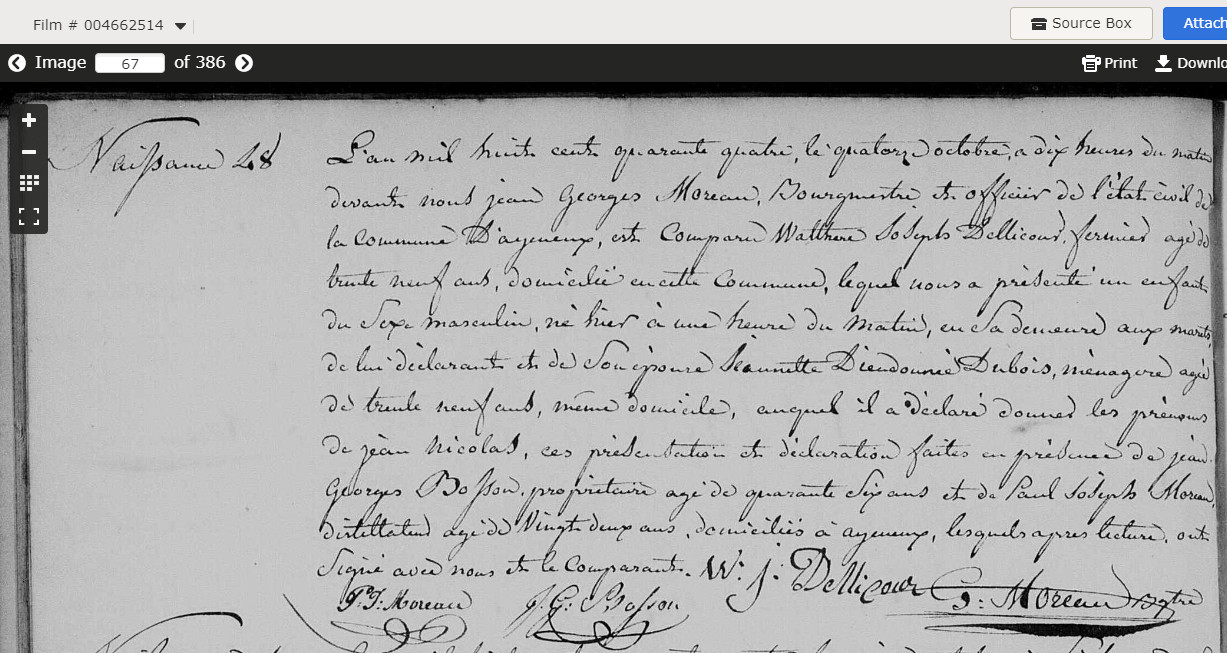 Film # 004662514
Source Box
Attach
Image 67 of 386
Print
Downlo
Naissance 48
L'an mil huit cent quarante quatre, le quatorze octobre, a dix heures du matin
devant nous jean Georges Moreau, Bourgmestre et officier de l'état civil de
la Commune D'ayeneux, est Comparu Walthere Joseph Dellicour, fermier agé de
trente neuf ans, domicilié en cette Commune, lequel nous a présenté un enfant
du Sexe masculin, né hier à une heure du Matin, en Sa demeure aux marets,
de lui déclarant et de Son épouse Jeannette Dieudonnée Dubois, ménagere agée
de trente neuf ans, même domicile, auquel il a déclaré donner les prénoms
de jean nicolas, ces présentation et déclaration faites en présence de jean
Georges Bosson, propriétaire agé de quarante Six ans et de Paul Joseph Moreau,
distillateur agé de Vingt deux ans, domiciliés à ayeneux, lesquels apres lecture, ont
Signé avec nous et le Comparant. W: j: Dellicour
P. J: Moreau J: G: Bosson G: Moreau bgtre